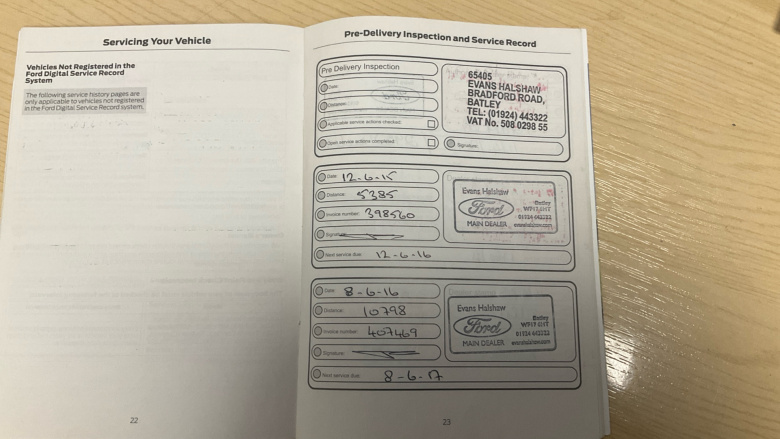 Servicing Your Vehicle
Vehicles Not Registered in the
Ford Digital Service Record
System
The following service history pages are
only applicable to vehicles not registered
in the Ford Digital Service Record system.
22
Pre-Delivery Inspection and Service Record
Pre Delivery Inspection
Date:
Distance:
Applicable service actions checked:
Open service actions completed:
65405
EVANS HALSHAW
BRADFORD ROAD,
BATLEY
TEL: (01924) 443322
VAT No. 508 0298 55
Signature:
Date: 12-6-15
Distance: 5385
Invoice number: 398560
Signature:
Next service due: 12-6-16
Evans Halshaw
Ford
MAIN DEALER
Batley
WF17
evanshalshaw.com
Date: 8-6-16
Distance: 10798
Invoice number: 407469
Signature:
Next service due: 8-6-17
Evans Halshaw
Ford
MAIN DEALER
Batley
WF17
evanshalshaw.com
23